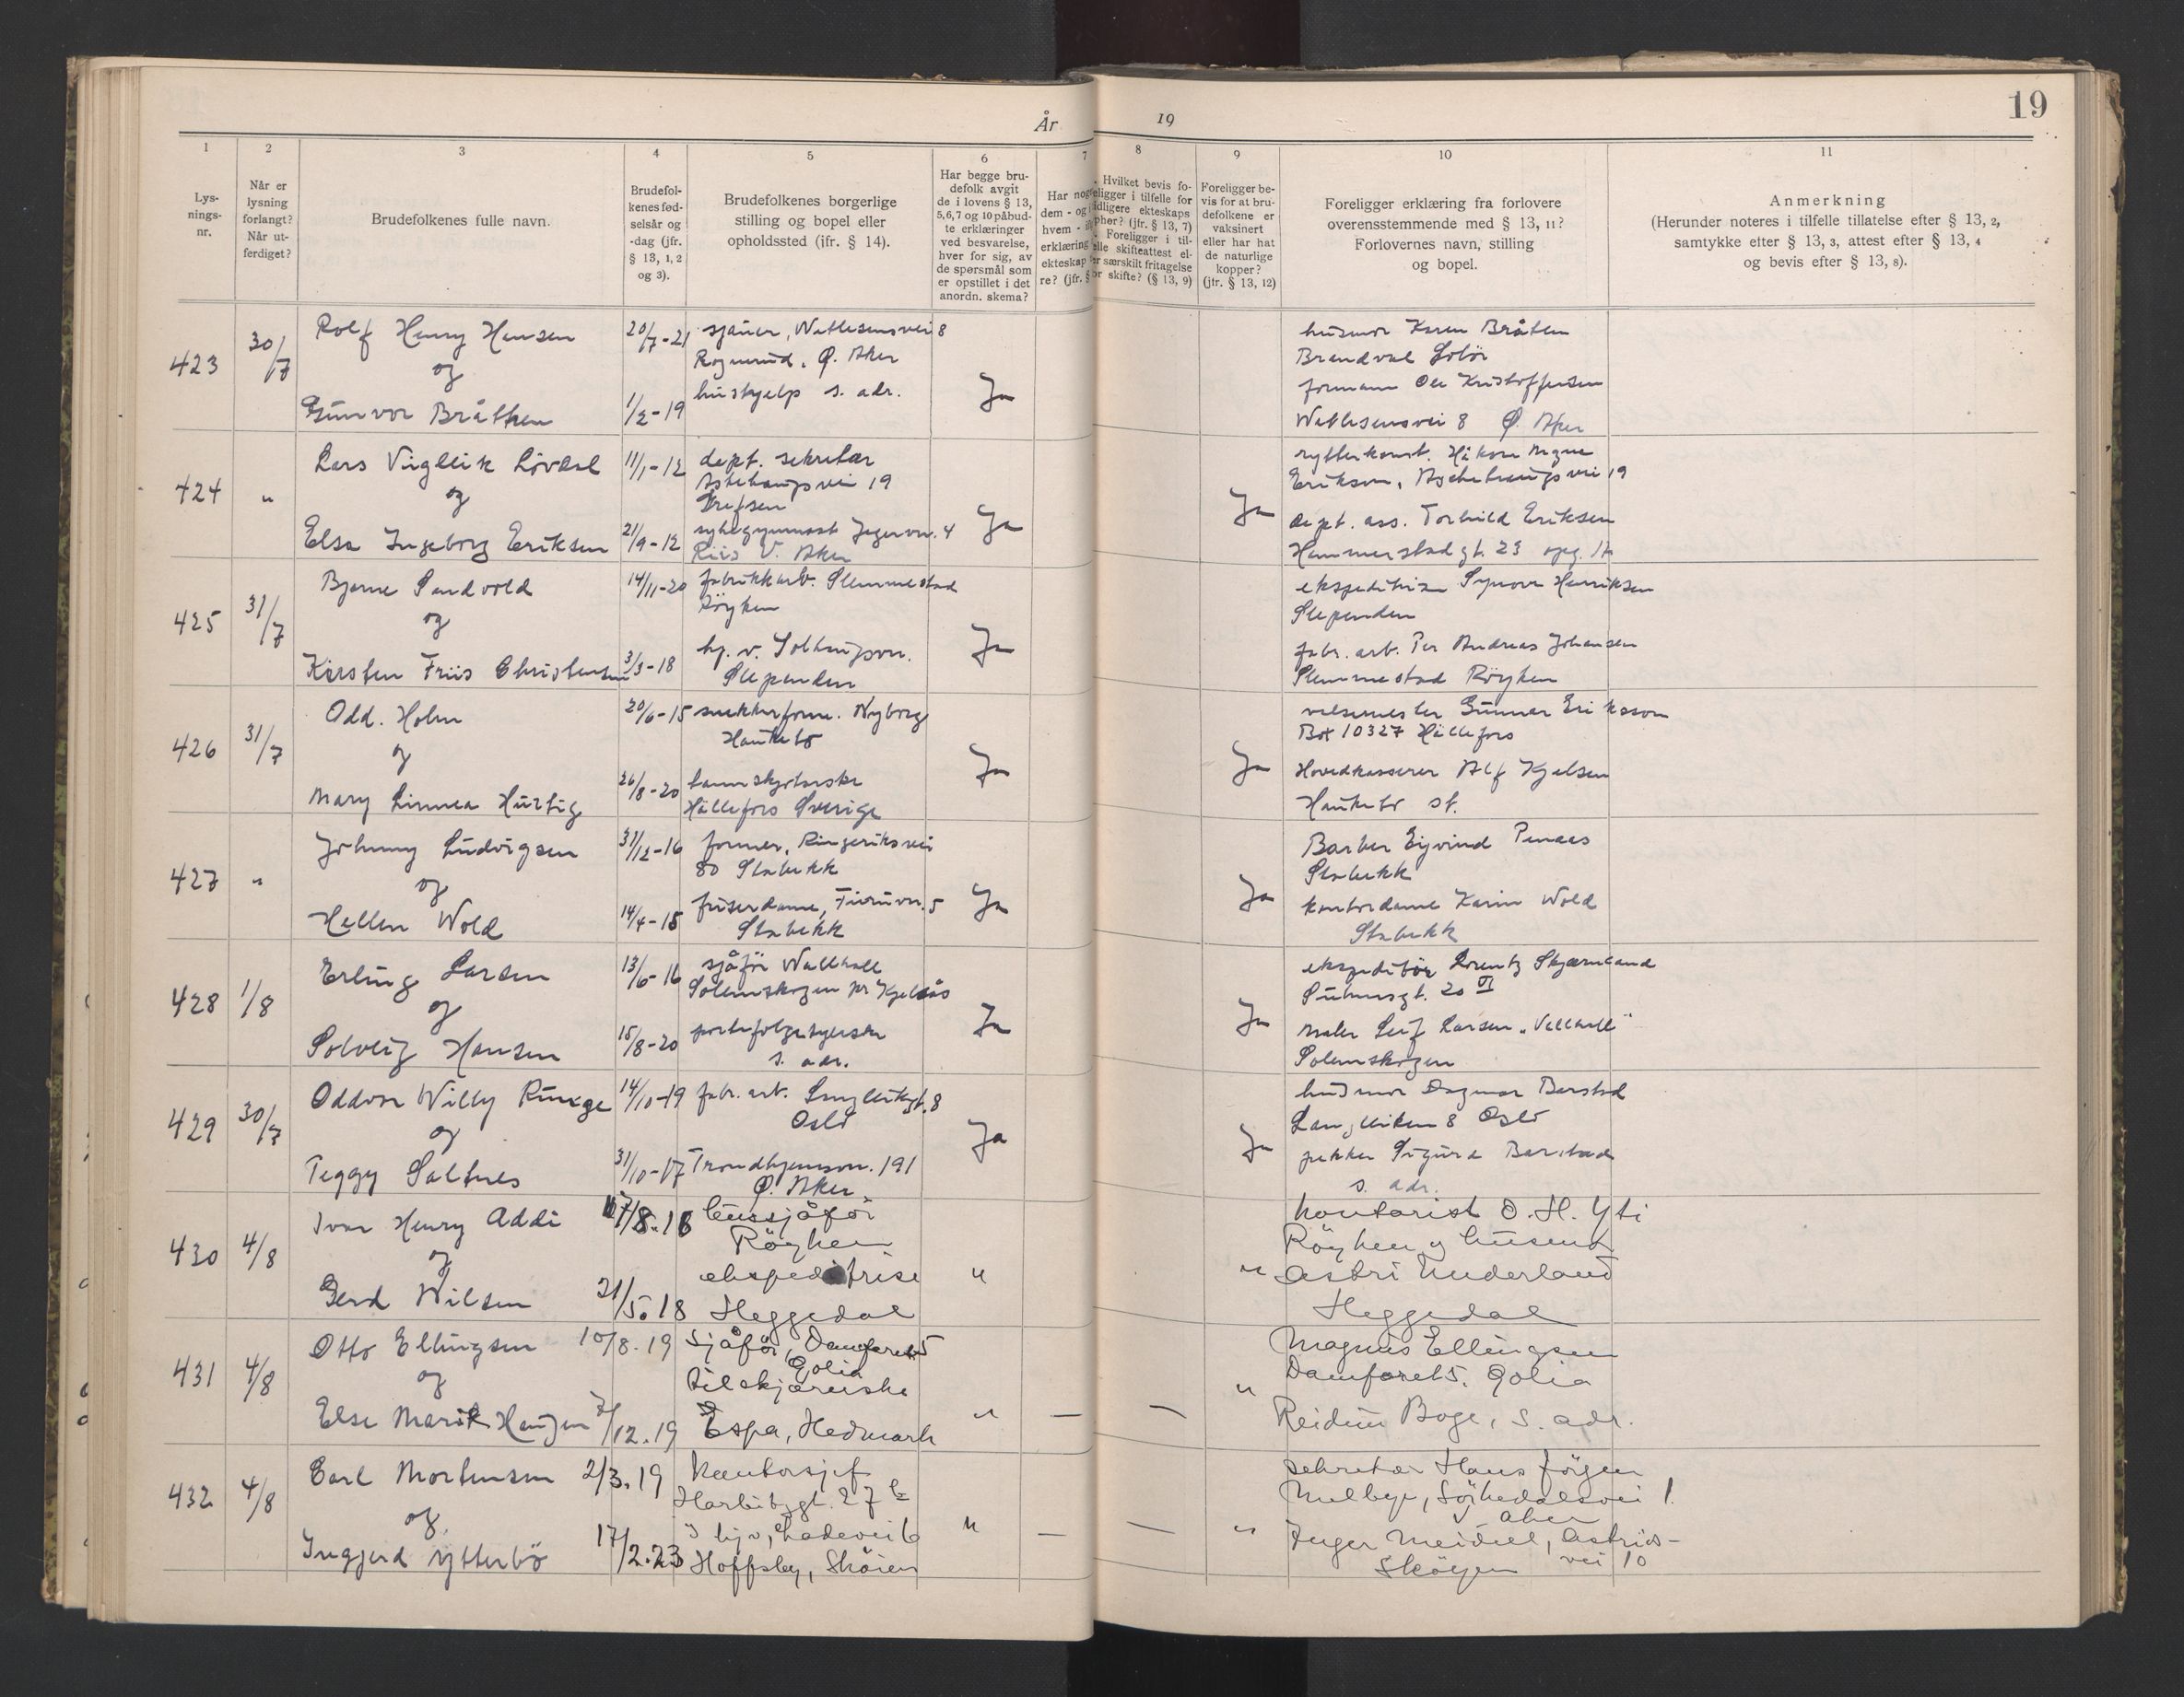 År
19
19
1
2
3
4
5
6
7
8
9
10
11
Lys-
nings-
nr.
Når er
lysning
forlangt?
Når ut-
ferdiget?
Brudefolkenes fulle navn.
Brudefol-
kenes fød-
selsår og
-dag (jfr.
§ 13, 1, 2
og 3).
Brudefolkenes borgerlige
stilling og bopel eller
opholdssted (jfr. § 14).
Har begge bru-
defolk avgit
de i lovens § 13,
5,6,7 og 10 påbud-
te erklæringer
ved besvarelse,
hver for sig, av
de spørsmål som
er opstillet i det
anordn. skema?
Har
dem - og
hvem -
erklæring
ekteskap
re? (jfr. §
Hvilket bevis fo-
religger i tilfelle for
tidligere ekteskaps
ophør? (jfr. § 13, 7)
Foreligger i til-
felle skifteattest el-
ler særskilt fritagelse
for skifte? (§ 13, 9)
Foreligger be-
vis for at bru-
defolkene er
vaksinert
eller har hat
de naturlige
kopper?
(jfr. § 13, 12)
Foreligger erklæring fra forlovere
overensstemmende med § 13, 11?
Forlovernes navn, stilling
og bopel.
Anmerkning
(Herunder noteres i tilfelle tillatelse efter § 13, 2,
samtykke efter § 13, 3, attest efter § 13, 4
og bevis efter § 13, 8).
423 30/7 Rolf Henry Hansen 20/7-21 sjauer, 8
og Ø. Aker
Gunvor Bråthen 1/2-19 hushjelp s. adr. Ja
husmor Karen Bråten
Brandval Solør
formann Ole Kristoffersen
8 Ø. Aker
424 " Lars Lövdal 11/1-12 dept. sekretær
og 19
Grefsen
Elsa Ingeborg Eriksen 21/9-12 sykegymnast Jegervn. 4 Ja
Riis V. Aker
Håkon Magne
Eriksen, 19
Ja dept. ass. Torhild Eriksen
Hammerstadgt. 23 opg. 17
425 31/7 Bjarne Sandvold 14/11-20 fabrikkarb. Slemmestad
og Röyken
Kirsten Friis Christensen 3/3-18 hj. v. Ja
Slependen
ekspeditrise Synove Henriksen
Slependen
fabr. arb. Per Andreas Johansen
Slemmestad Röyken
426 31/7 Odd. Holm 20/6-15 snekkerform. Nyborg
og Hauketo
Mary Linnea Hurtig 26/8-20 Ja
Hällefors Sverige
valsemester Gunnar Eriksson
Box 10327 Hällefors
Ja Hovedkasserer Alf Kjelsen
Hauketo st.
427 " Johnny Ludvigsen 31/12-16 former, Ringeriksvei
og 80 Stabekk
Hellen Wold 14/4-15 friserdame, Furuvn. 5 Ja
Stabekk
Barber Eyvind
Stabekk
Ja kontordame Karin Wold
Stabekk
428 1/8 Erling Larsen 13/6-16 sjåför Wallhall
og Solemskogen pr Kjelsås
Solveig Hansen 15/8-20 Ja
s. adr.
ekspeditör Lorentz Skjærmland
20 VI
Ja maler Leif Larsen "Vallhall"
Solemskogen
429 30/7 Oddvar Willy Runge 14/10-19 fabr. arb. Langlikgt. 8
og Oslo
Peggy Saltnes 31/10-17 Trondhjemsvn. 191 Ja
Ø. Aker
husmor Dagmar Berstad
8 Oslo
Ja Sigurd Berstad
s. adr.
430 4/8 Ivar Henry Addi 17/8.16 bussjåför
og Röyken
Gerd Wilsen 21/5.18 ekspeditrise "
Heggedal
kontorist O. H. Yti
Röyken
" Astri Underland
Heggedal
431 4/8 Otto Ellingsen 10/8.19 sjåför, Damfaret 5
og
Else Marie Haugen 7/12.19 " —
Espa, Hedmark
— Magnus Ellingsen
Damfaret 5.
" Reidun Boge, s. adr.
432 4/8 Carl Mortensen 2/3.19 kontorsjef
og Harbitzgt. 27 b
Ingjerd Ytterbö 17/2.23 hj. v, Ladevei 6 " —
Hoffsby, Sköien
— sekretær Hans Jörgen
Melbye, Sörkedalsvei 1.
V Aker
" Inger Meidell, Astrids-
vei 10
Sköyen